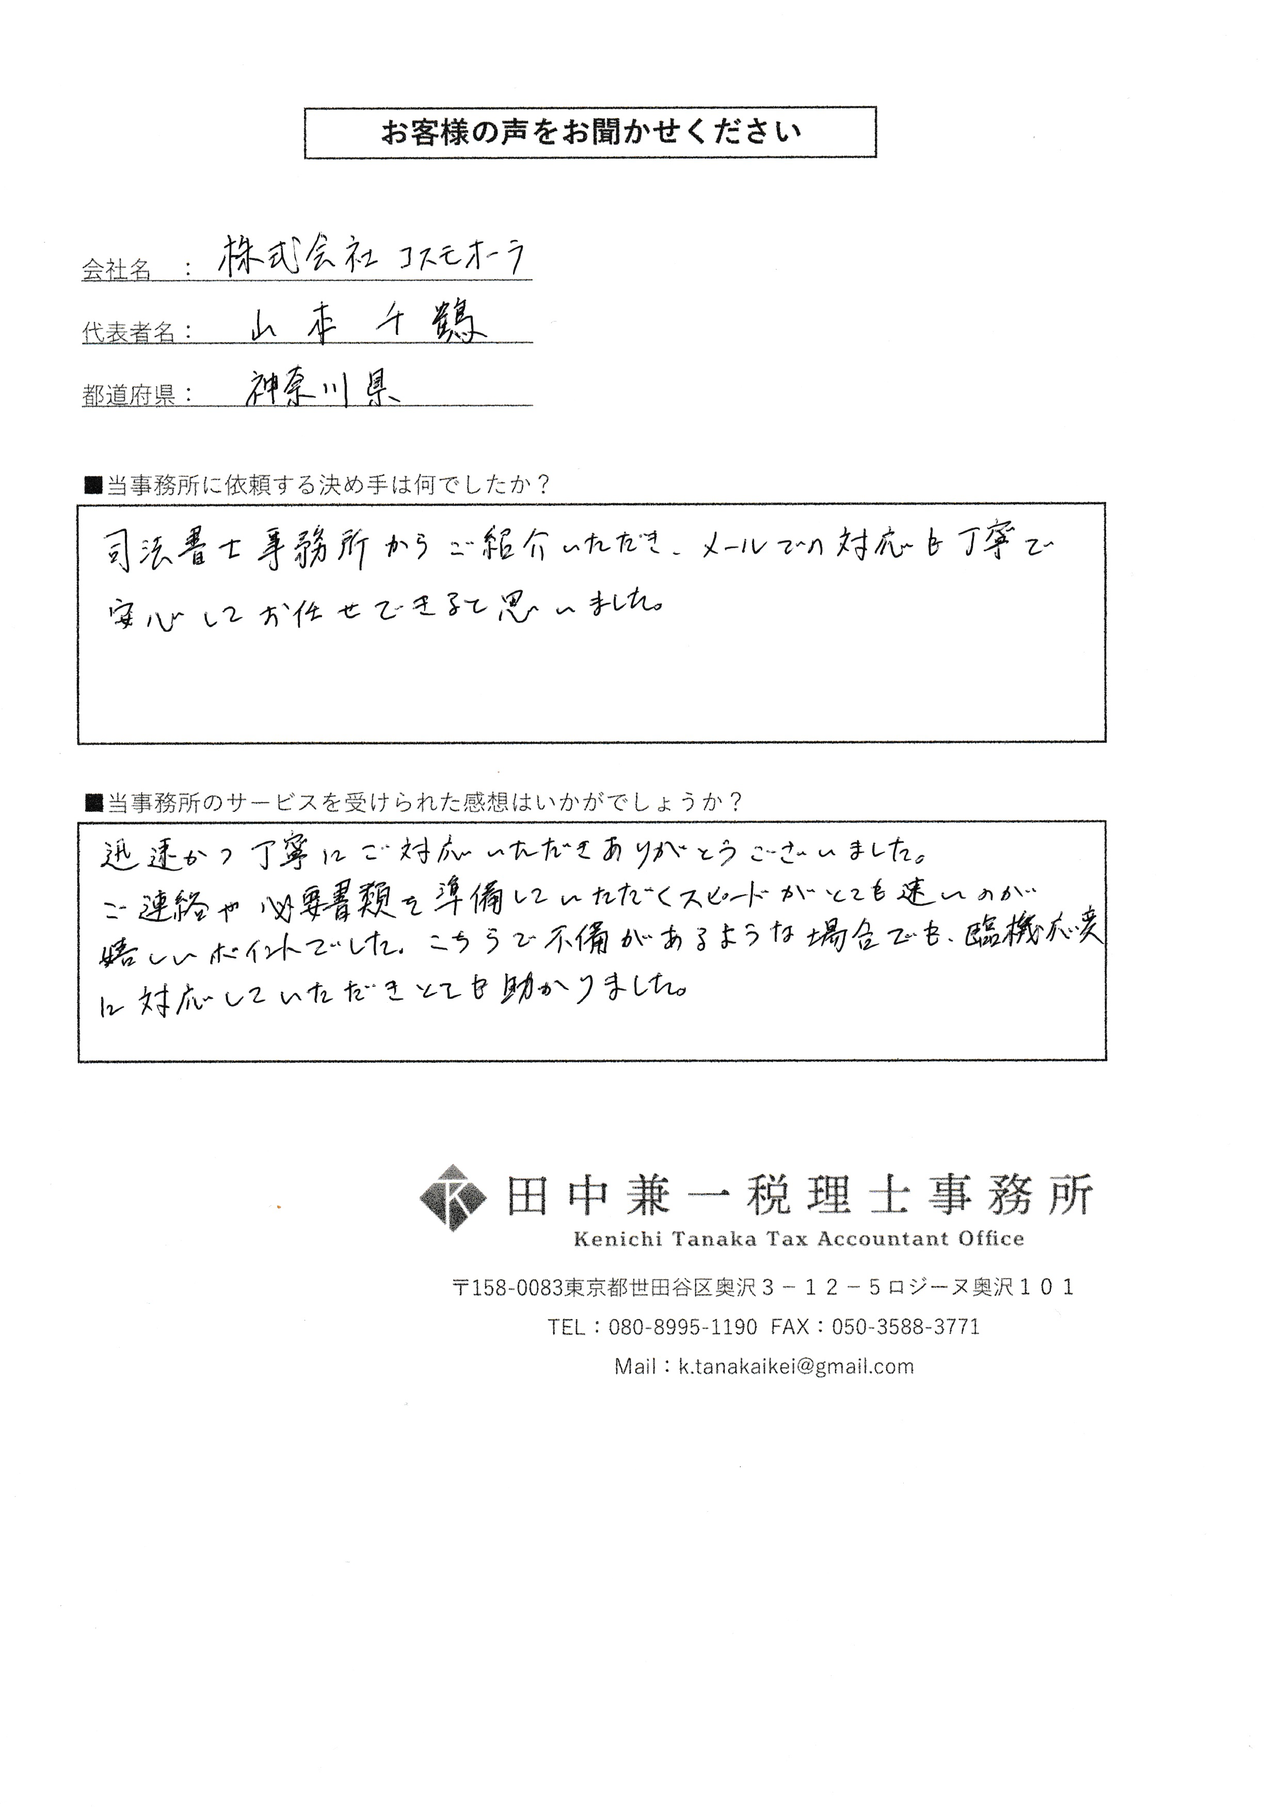 お客様の声をお聞かせください
会社名　：株式会社 コスモオーラ
代表者名：山本 千鶴
都道府県：神奈川県
■当事務所に依頼する決め手は何でしたか？
司法書士事務所からご紹介いただき、メールでの対応も丁寧で
安心してお任せできると思いました。
■当事務所のサービスを受けられた感想はいかがでしょうか？
迅速かつ丁寧にご対応いただきありがとうございました。
ご連絡や必要書類を準備していただくスピードがとても速いのが
嬉しいポイントでした。こちらで不備があるような場合でも、臨機応変
に対応していただきとても助かりました。
田中兼一税理士事務所
Kenichi Tanaka Tax Accountant Office
〒158-0083東京都世田谷区奥沢３－１２－５ロジーヌ奥沢１０１
TEL：080-8995-1190 FAX：050-3588-3771
Mail：k.tanakaikei@gmail.com